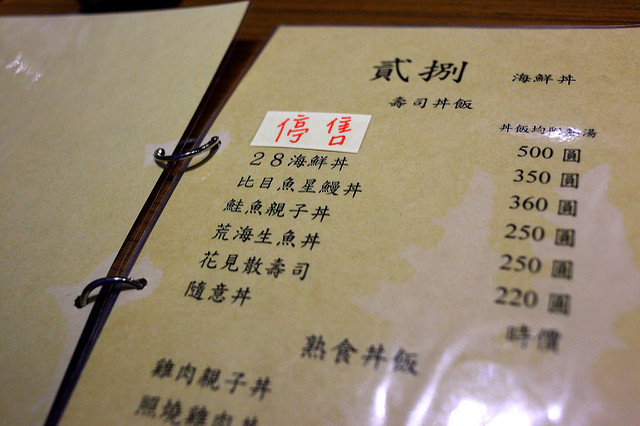 貳捌 海鮮丼
壽司丼飯
丼飯均附湯
停售 500 圓
28海鮮丼 350 圓
比目魚星鰻丼 360 圓
鮭魚親子丼 250 圓
荒海生魚丼 250 圓
花見散壽司 220 圓
隨意丼 時價
熟食丼飯
雞肉親子丼
照燒雞肉丼